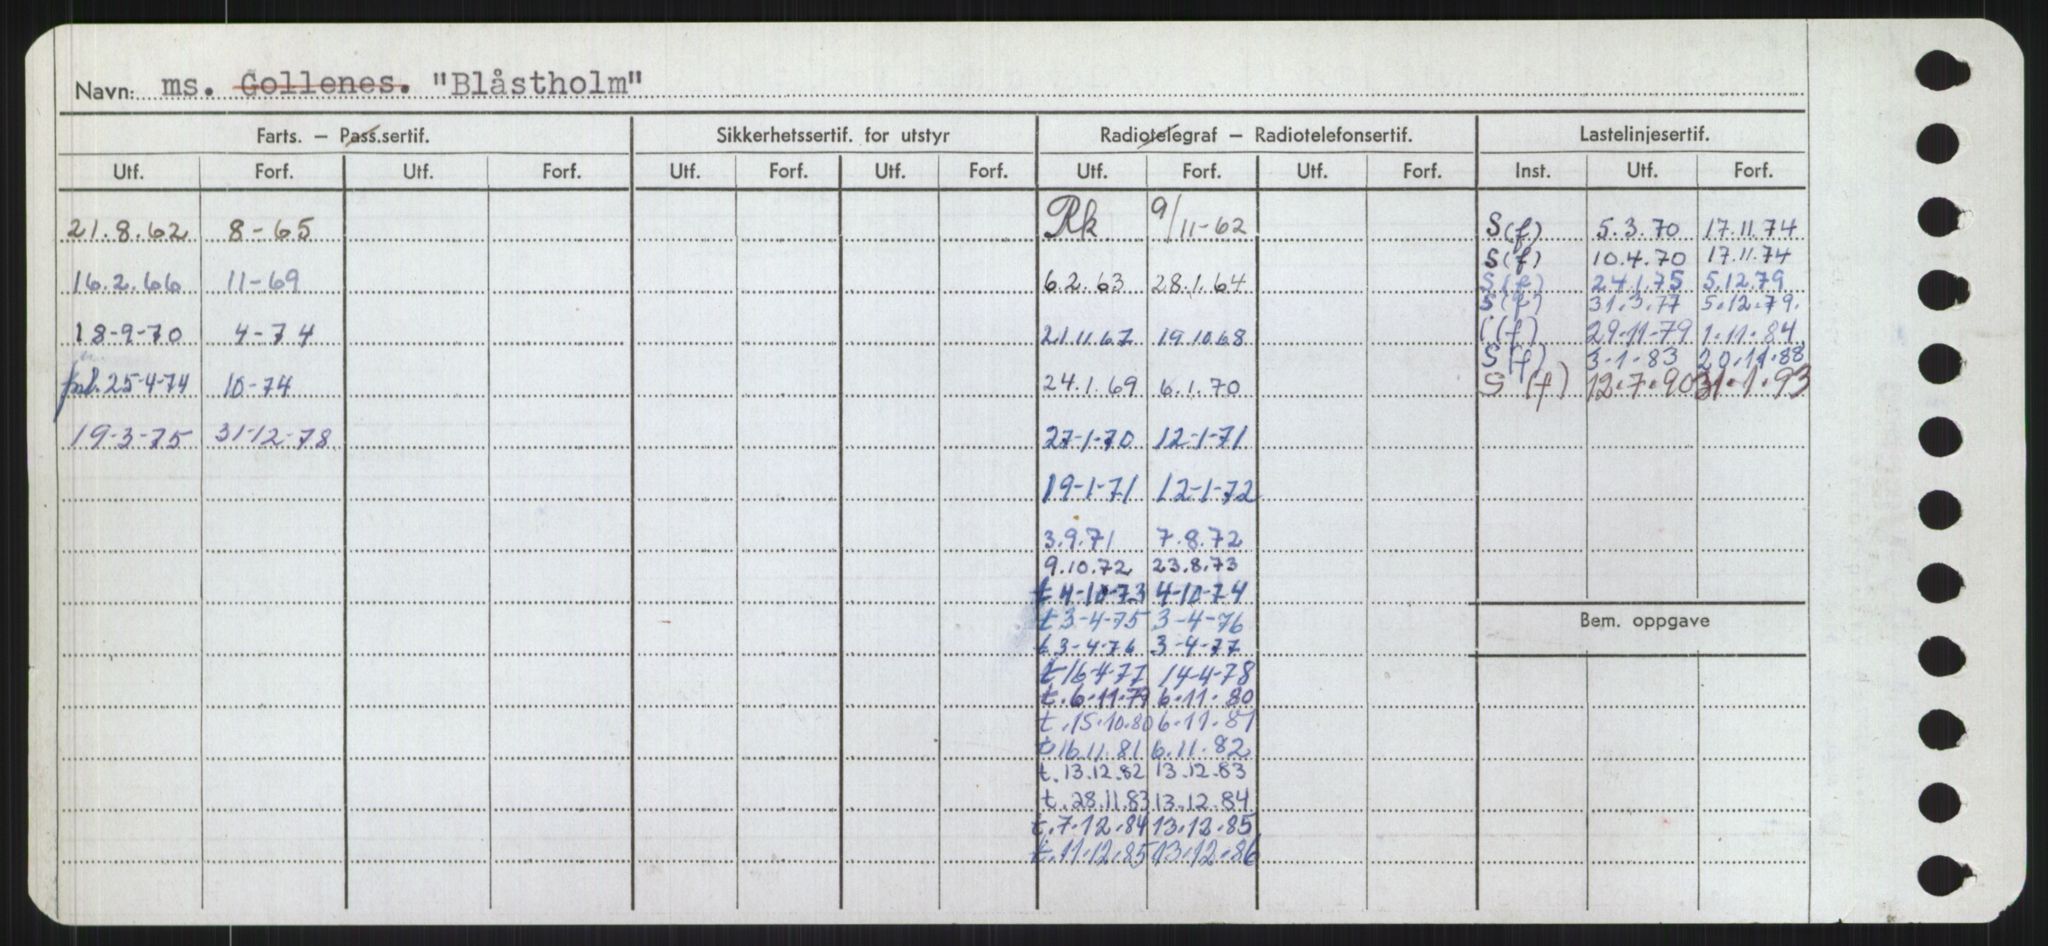 Navn: ms. Gollenes. "Blåstholm"
Farts. — Pass.sertif. Sikkerhetssertif. for utstyr Radiotelegraf — Radiotelefonsertif. Lastelinjesertif.
Utf. Forf. Utf. Forf. Utf. Forf. Utf. Forf. Utf. Forf. Utf. Forf. Inst. Utf. Forf.
21.8.62 8-65 Rk 9/11-62 S(f) 5.3.70 17.11.74
S(f) 10.4.70 17.11.74
16.2.66 11-69 6.2.63 28.1.64 S(f) 24.1.75 5.12.79
S(f) 31.3.77 5.12.79.
18-9-70 4-74 21.11.67 19.10.68 (f) 29-11-79 1.11.84
S(f) 3-1-83 20.11.88
25-4-74 10-74 24.1.69 6.1.70 S(f) 12.7.90 31.1.93
19-3-75 31-12-78 27-1-70 12-1-71
19-1-71 12-1-72
3.9.71 7.8.72
9.10.72 23.8.73
t 4-10-73 4-10-74
t 3-4-75 3-4-76
Bem. oppgave
t 3-4-76 3-4-77
t 16-4-77 14-4-78
t. 6.11.79 6.11.80
t. 15.10.80 6.11.81
t 16.11.81 6.11.82
t. 13.12.82 13.12.83
t. 28.11.83 13.12.84
t. 7.12.84 13.12.85
t. 11.12.85 13.12.86